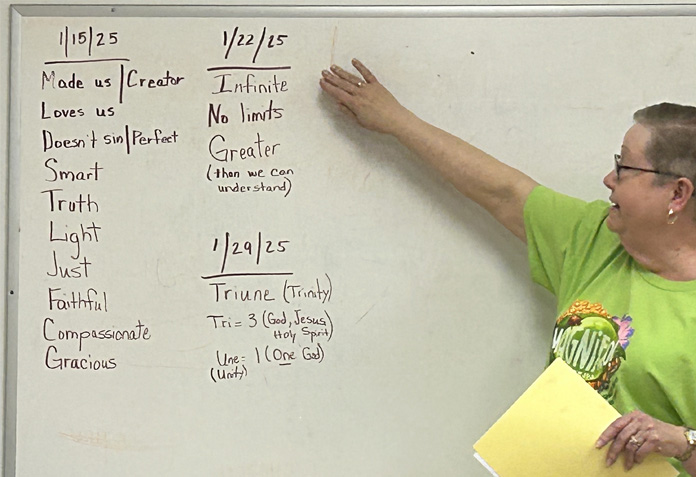 1/15/25
Made us | Creator
Loves us
Doesn't sin | Perfect
Smart
Truth
Light
Just
Faithful
Compassionate
Gracious
1/22/25
Infinite
No limits
Greater
(than we can
understand)
1/29/25
Triune (Trinity)
Tri = 3 (God, Jesus,
Holy Spirit)
Une = 1 (One God)
(Unity)